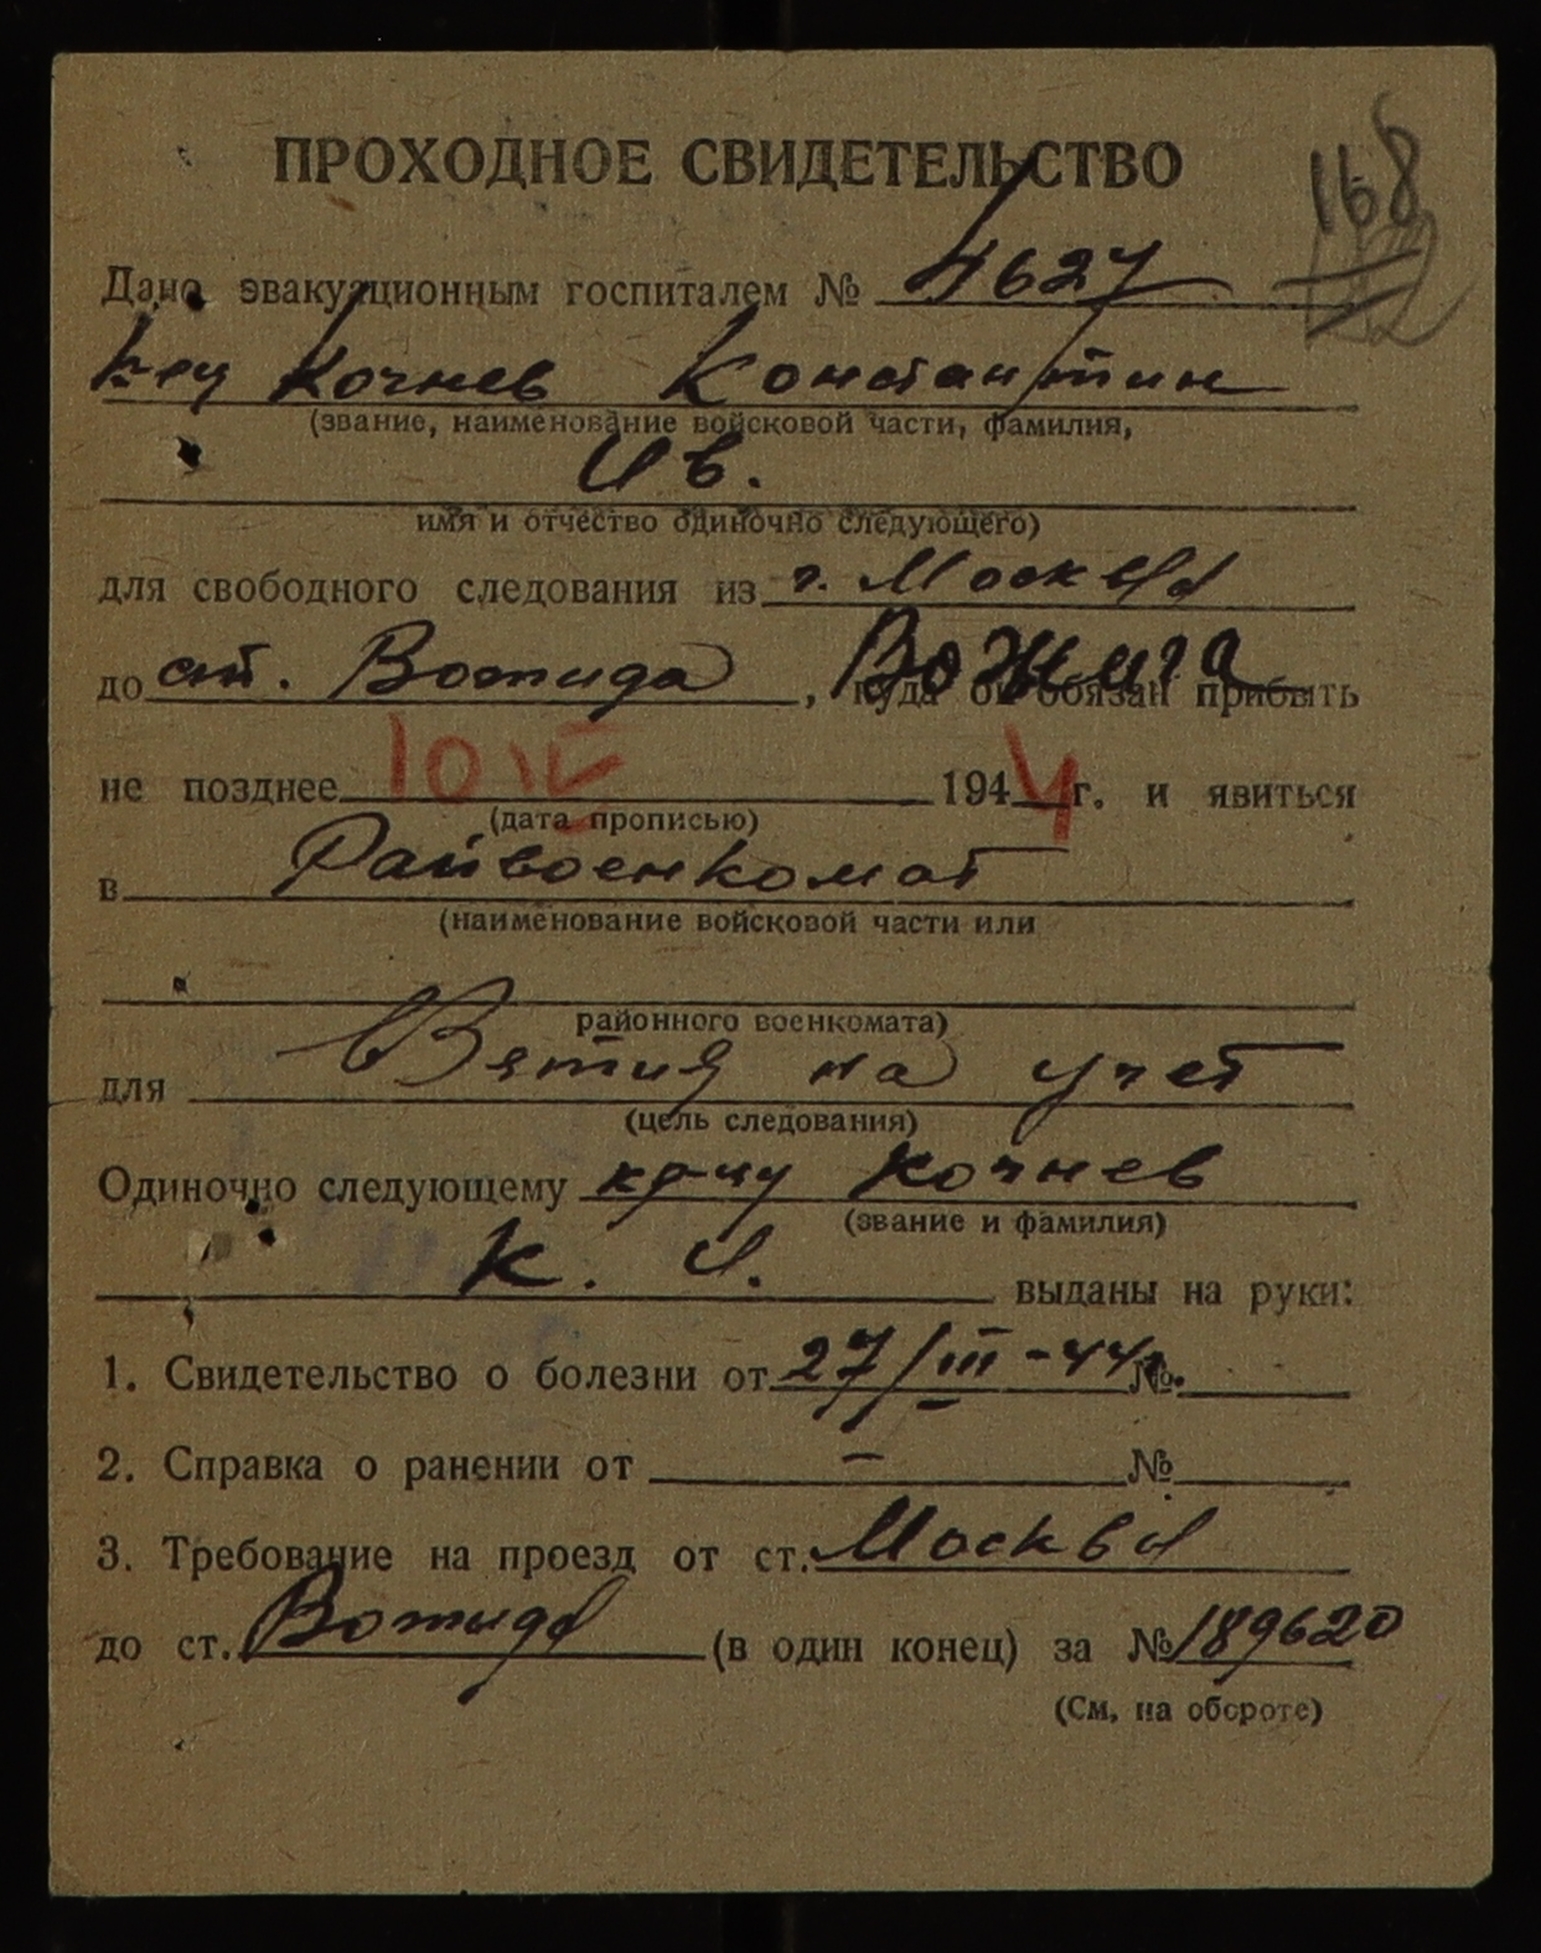 168
ПРОХОДНОЕ СВИДЕТЕЛЬСТВО
Дано эвакуационным госпиталем № 4627
Кочнев Константин
(звание, наименование войсковой части, фамилия,
Ив.
имя и отчество одиночно следующего)
для свободного следования из г. Москвы
до ст. Вотида, Вожига куда он обязан прибыть
не позднее 10 IV 1944 г. и явиться
(дата прописью)
в Райвоенкомат
(наименование войсковой части или
районного военкомата)
для Взятия на учет
(цель следования)
Одиночно следующему кр-цу Кочнев
(звание и фамилия)
К. И. выданы на руки:
1. Свидетельство о болезни от 27/III-44г. №
2. Справка о ранении от — №
3. Требование на проезд от ст. Москвы
до ст. Вотида (в один конец) за № 189620
(См, на обороте)